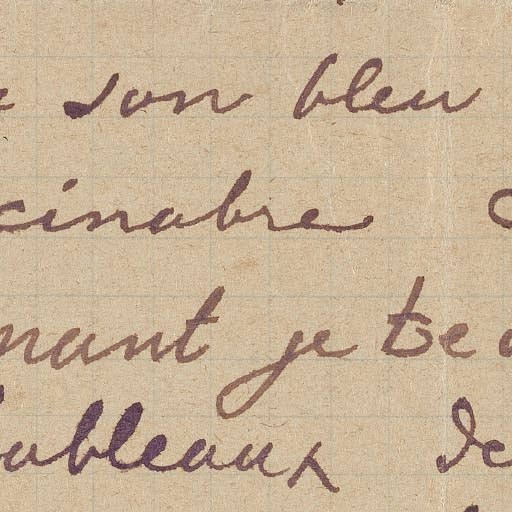 son bleu
cinabre
nant je te
tableaux de